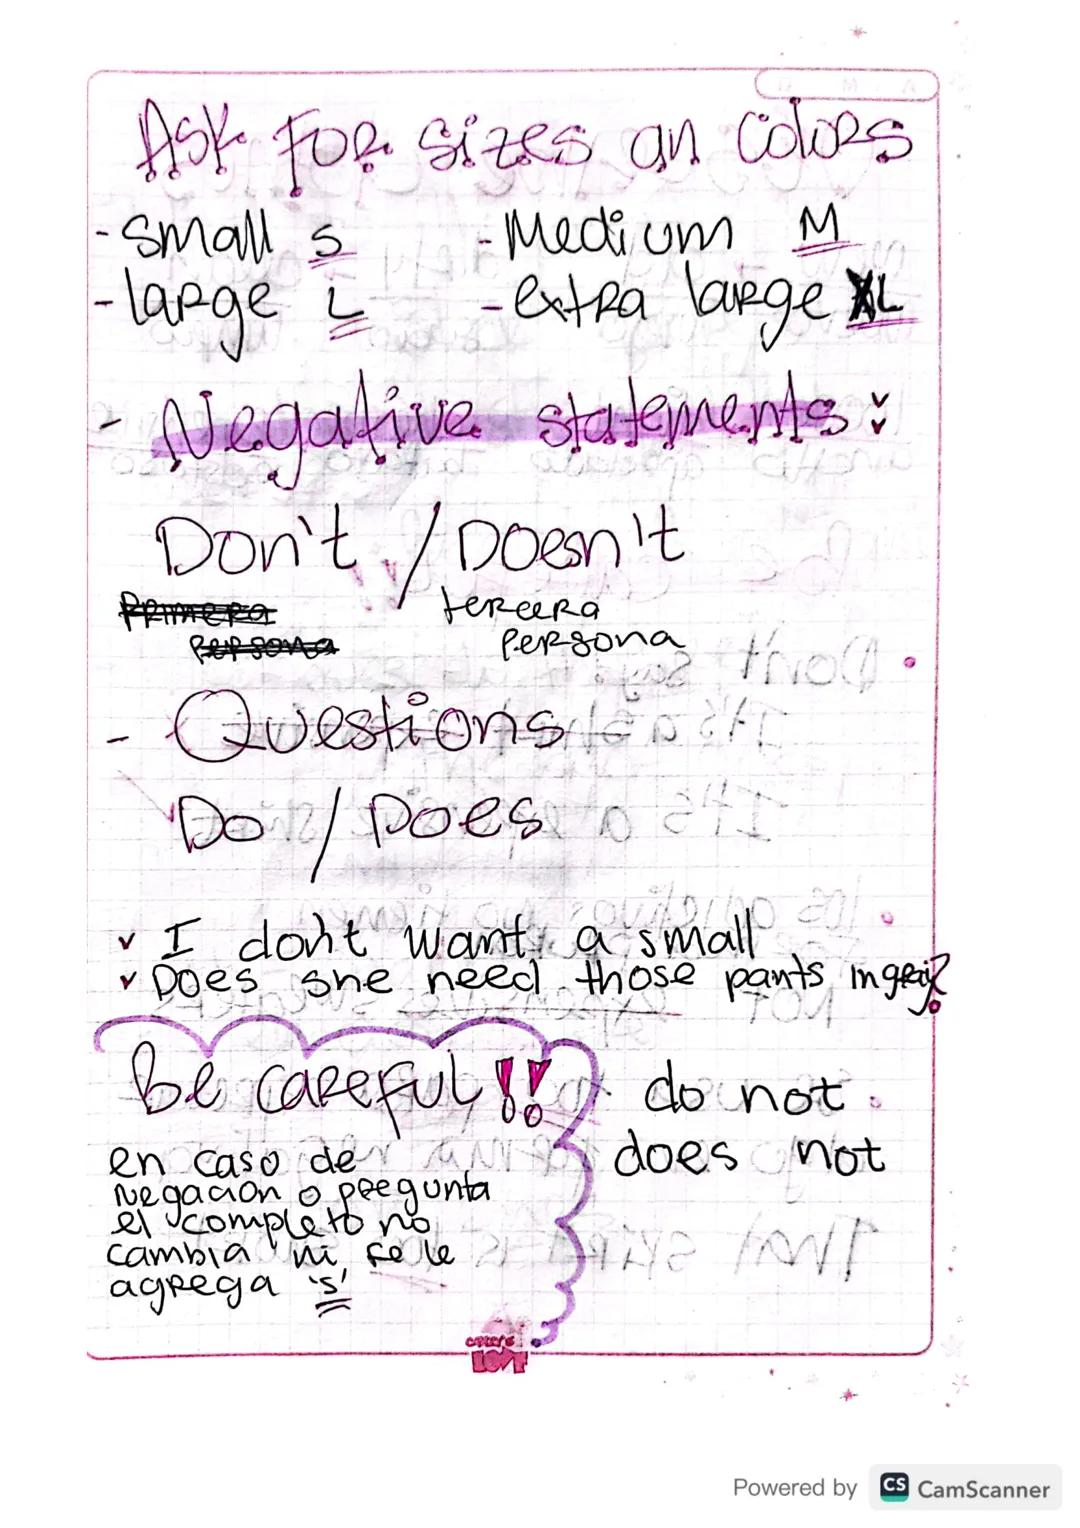 Ask For sizes an Colors
- small S - Medium M
- large L - extra large XL
- Negative statements:
Don't / Doesn't
Primera tercera
persona persona
- Questions
Do / Does
I don't want a small
Does she need those pants in gray?
Be careful!! do not
does not
en caso de
negación o pregunta
el completo no
cambia ni se le
agrega 's'
LOVE
Powered by CS CamScanner